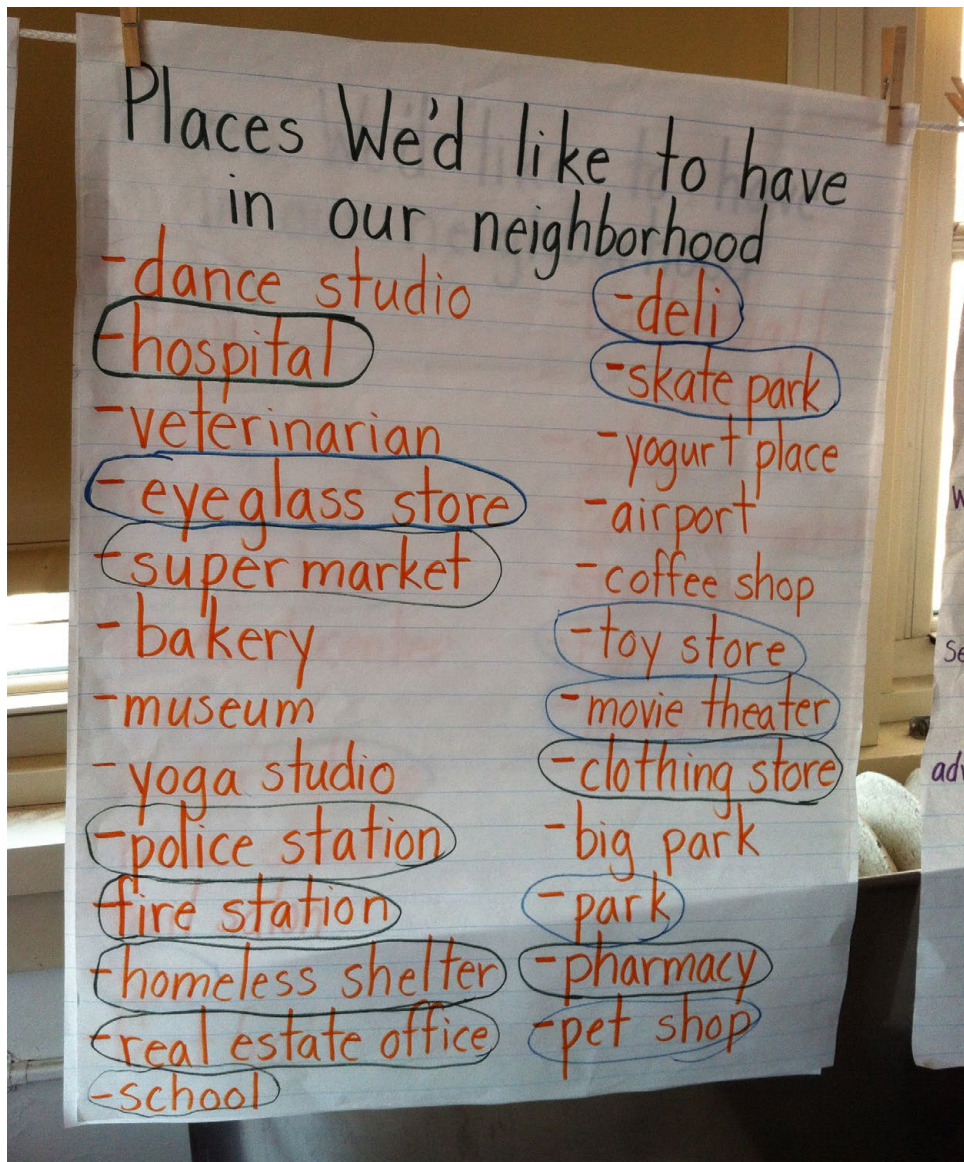 Places We'd like to have
in our neighborhood
-dance studio
-hospital
-veterinarian
-eyeglass store
-super market
-bakery
-museum
-yoga studio
-police station
-fire station
-homeless shelter
-real estate office
-school
-deli
-skate park
-yogurt place
-airport
-coffee shop
-toy store
-movie theater
-clothing store
-big park
-park
-pharmacy
-pet shop